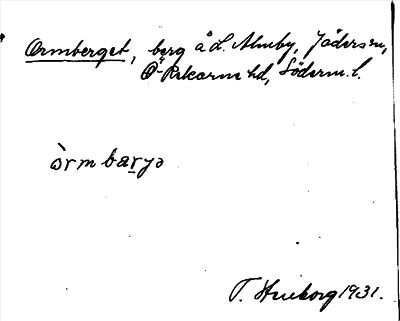 Ormberget, berg å L. Almby, Jäders sn,
Ö-Rekarne hd, Söderm. l.
òrmbaṟyə
T. Hneborg 1931.